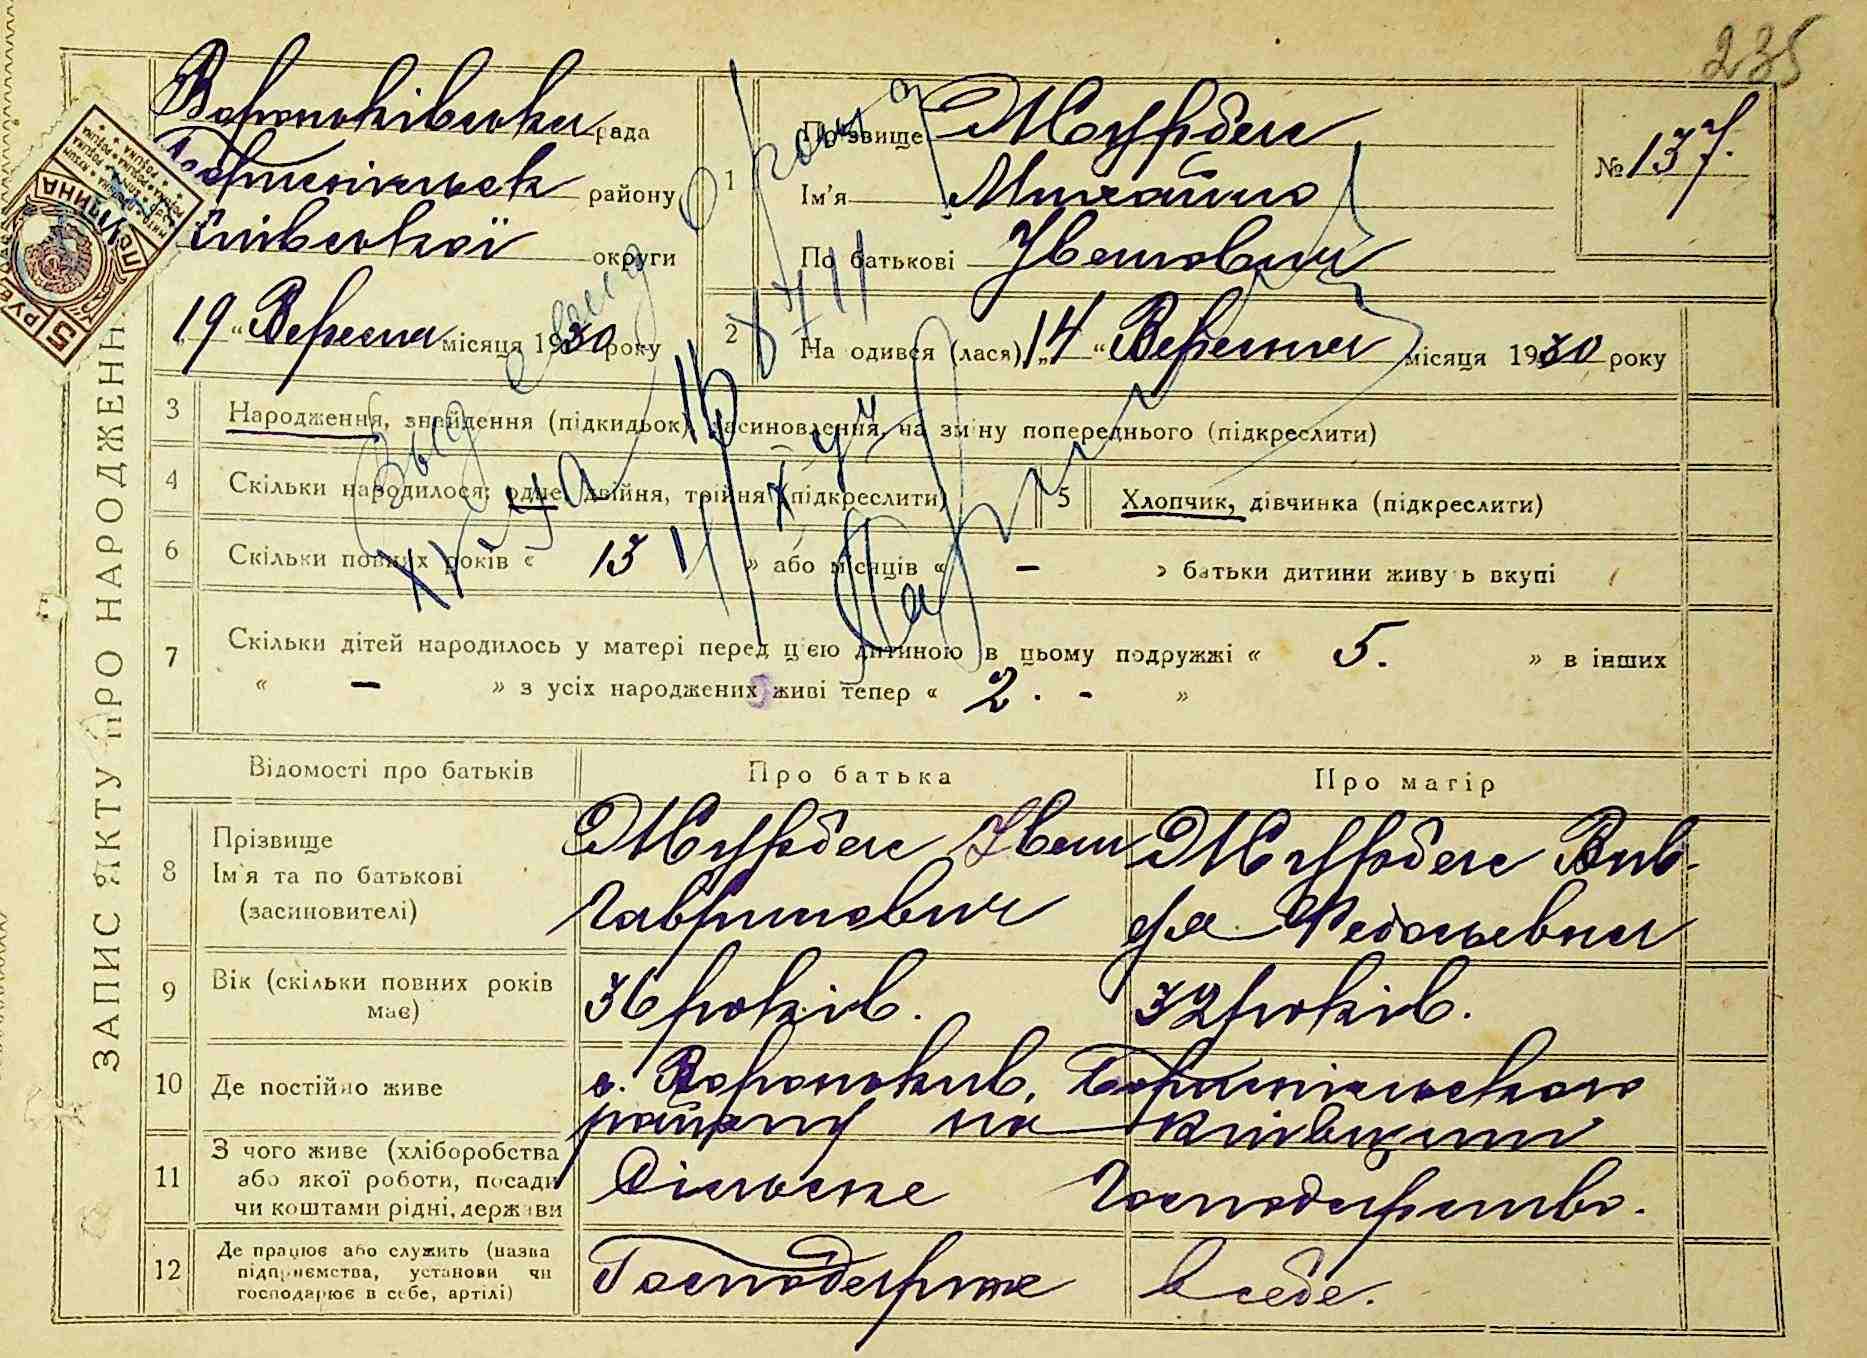 235
Вороньківська рада
Бориспільск району
Київської округи
„19“ Вересня місяця 1930 року
1
Прізвище Журбас
Ім'я Михайло
По батькові Іванович
№ 137.
2
Народився (лася) „14“ Вересня місяця 1930 року
ЗАПИС АКТУ ПРО НАРОДЖЕНН
3 Народження, знайдення (підкидьок), засиновлення, на зміну попереднього (підкреслити)
4 Скільки народилося: одне, двійня, трійня (підкреслити)
5 Хлопчик, дівчинка (підкреслити)
6 Скільки повних років « 13 » або місяців « – » батьки дитини живуть вкупі
7 Скільки дітей народилось у матері перед цією дитиною в цьому подружжі « 5. » в інших
« – » з усіх народжених живі тепер « 2. - »
Відомості про батьків Про батька Про матір
8 Прізвище
Ім'я та по батькові
(засиновителі)
Журбас Іван
Гаврилович
Журбас Вив-
дя Федосьевна
9 Вік (скільки повних років
має)
36 років.
32 років.
10 Де постійно живе
с. Вороньків, Бориспільского
району на Київщині
11 З чого живе (хліборобства
або якої роботи, посади
чи коштами рідні, держави
Сільське Господарство.
12 Де працює або служить (назва
підприємства, установи чи
господарює в себе, артілі)
Господарює в себе.
5